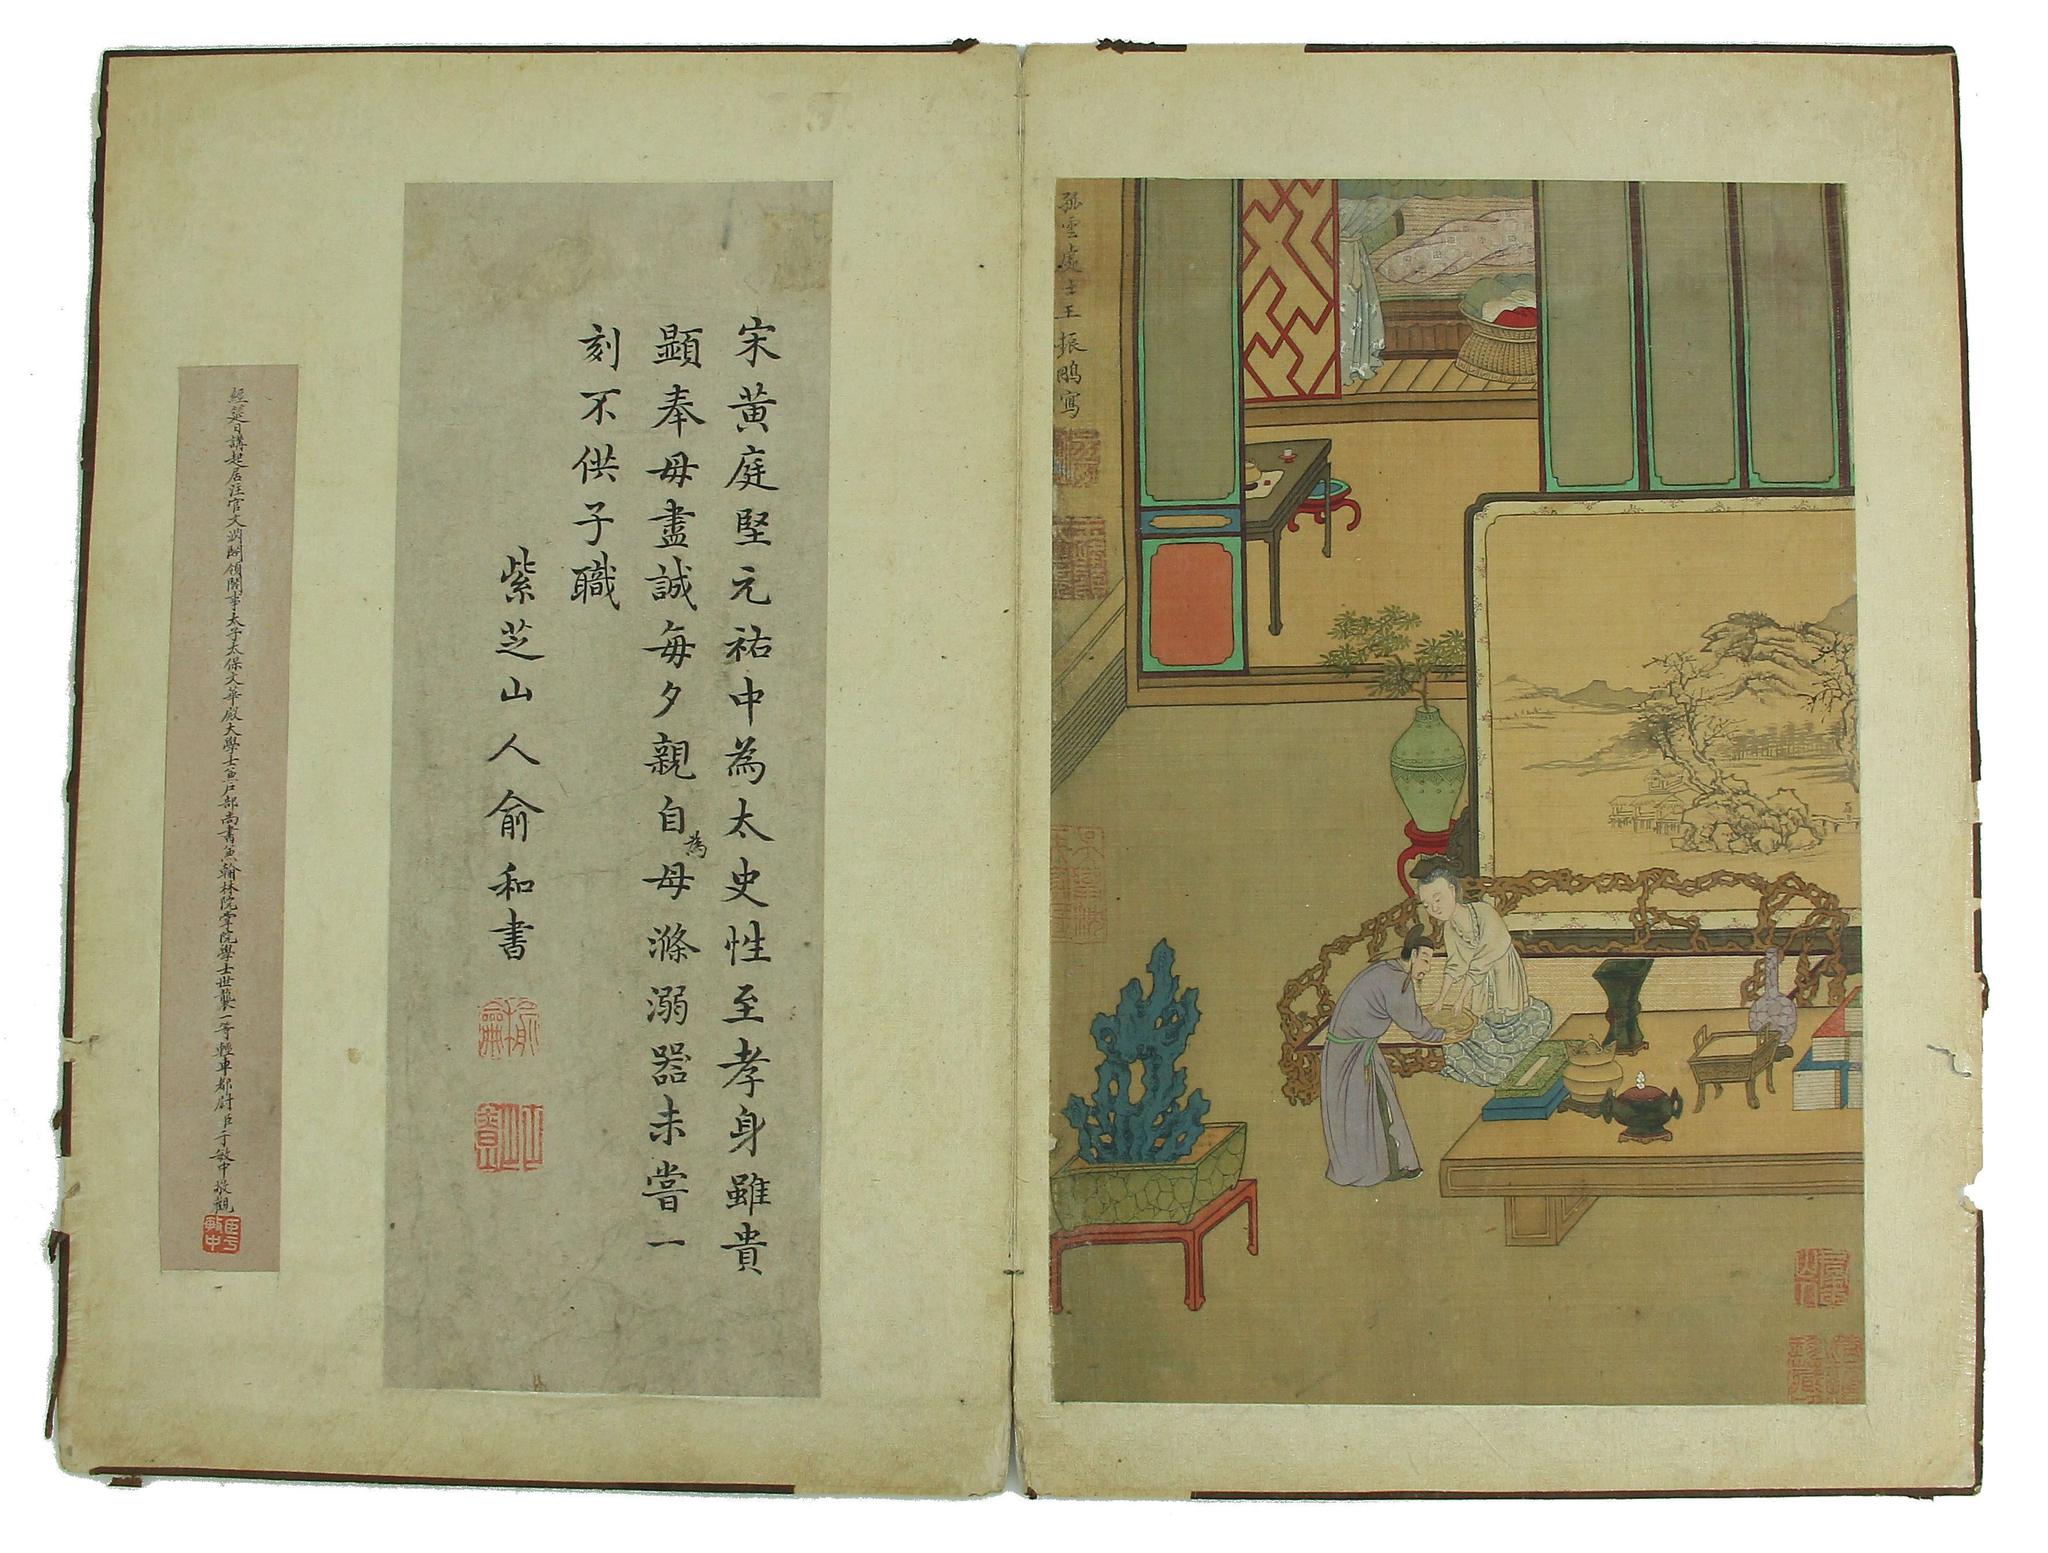 孤雲處士王振鵬寫
宋黃庭堅元祐中為太史性至孝身雖貴
顯奉母盡誠每夕親自為母滌溺器未嘗一
刻不供子職
紫芝山人俞和書
經筵日講起居注官文淵閣領閣事太子太保文華殿大學士兼戶部尚書兼翰林院掌院學士世襲一等輕車都尉臣于敏中敬觀
臣于敏中